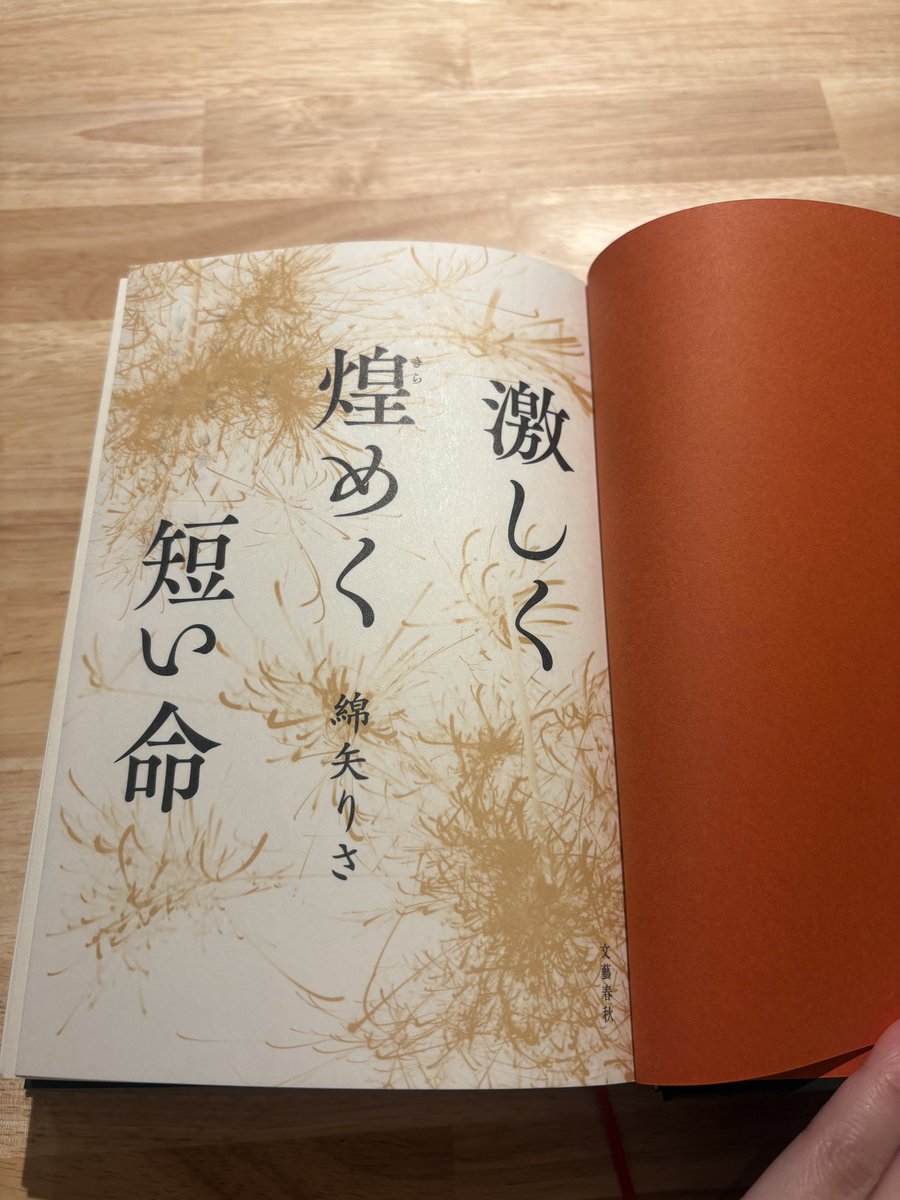 激しく
煌めく
きら
短い命
綿矢りさ
文藝春秋